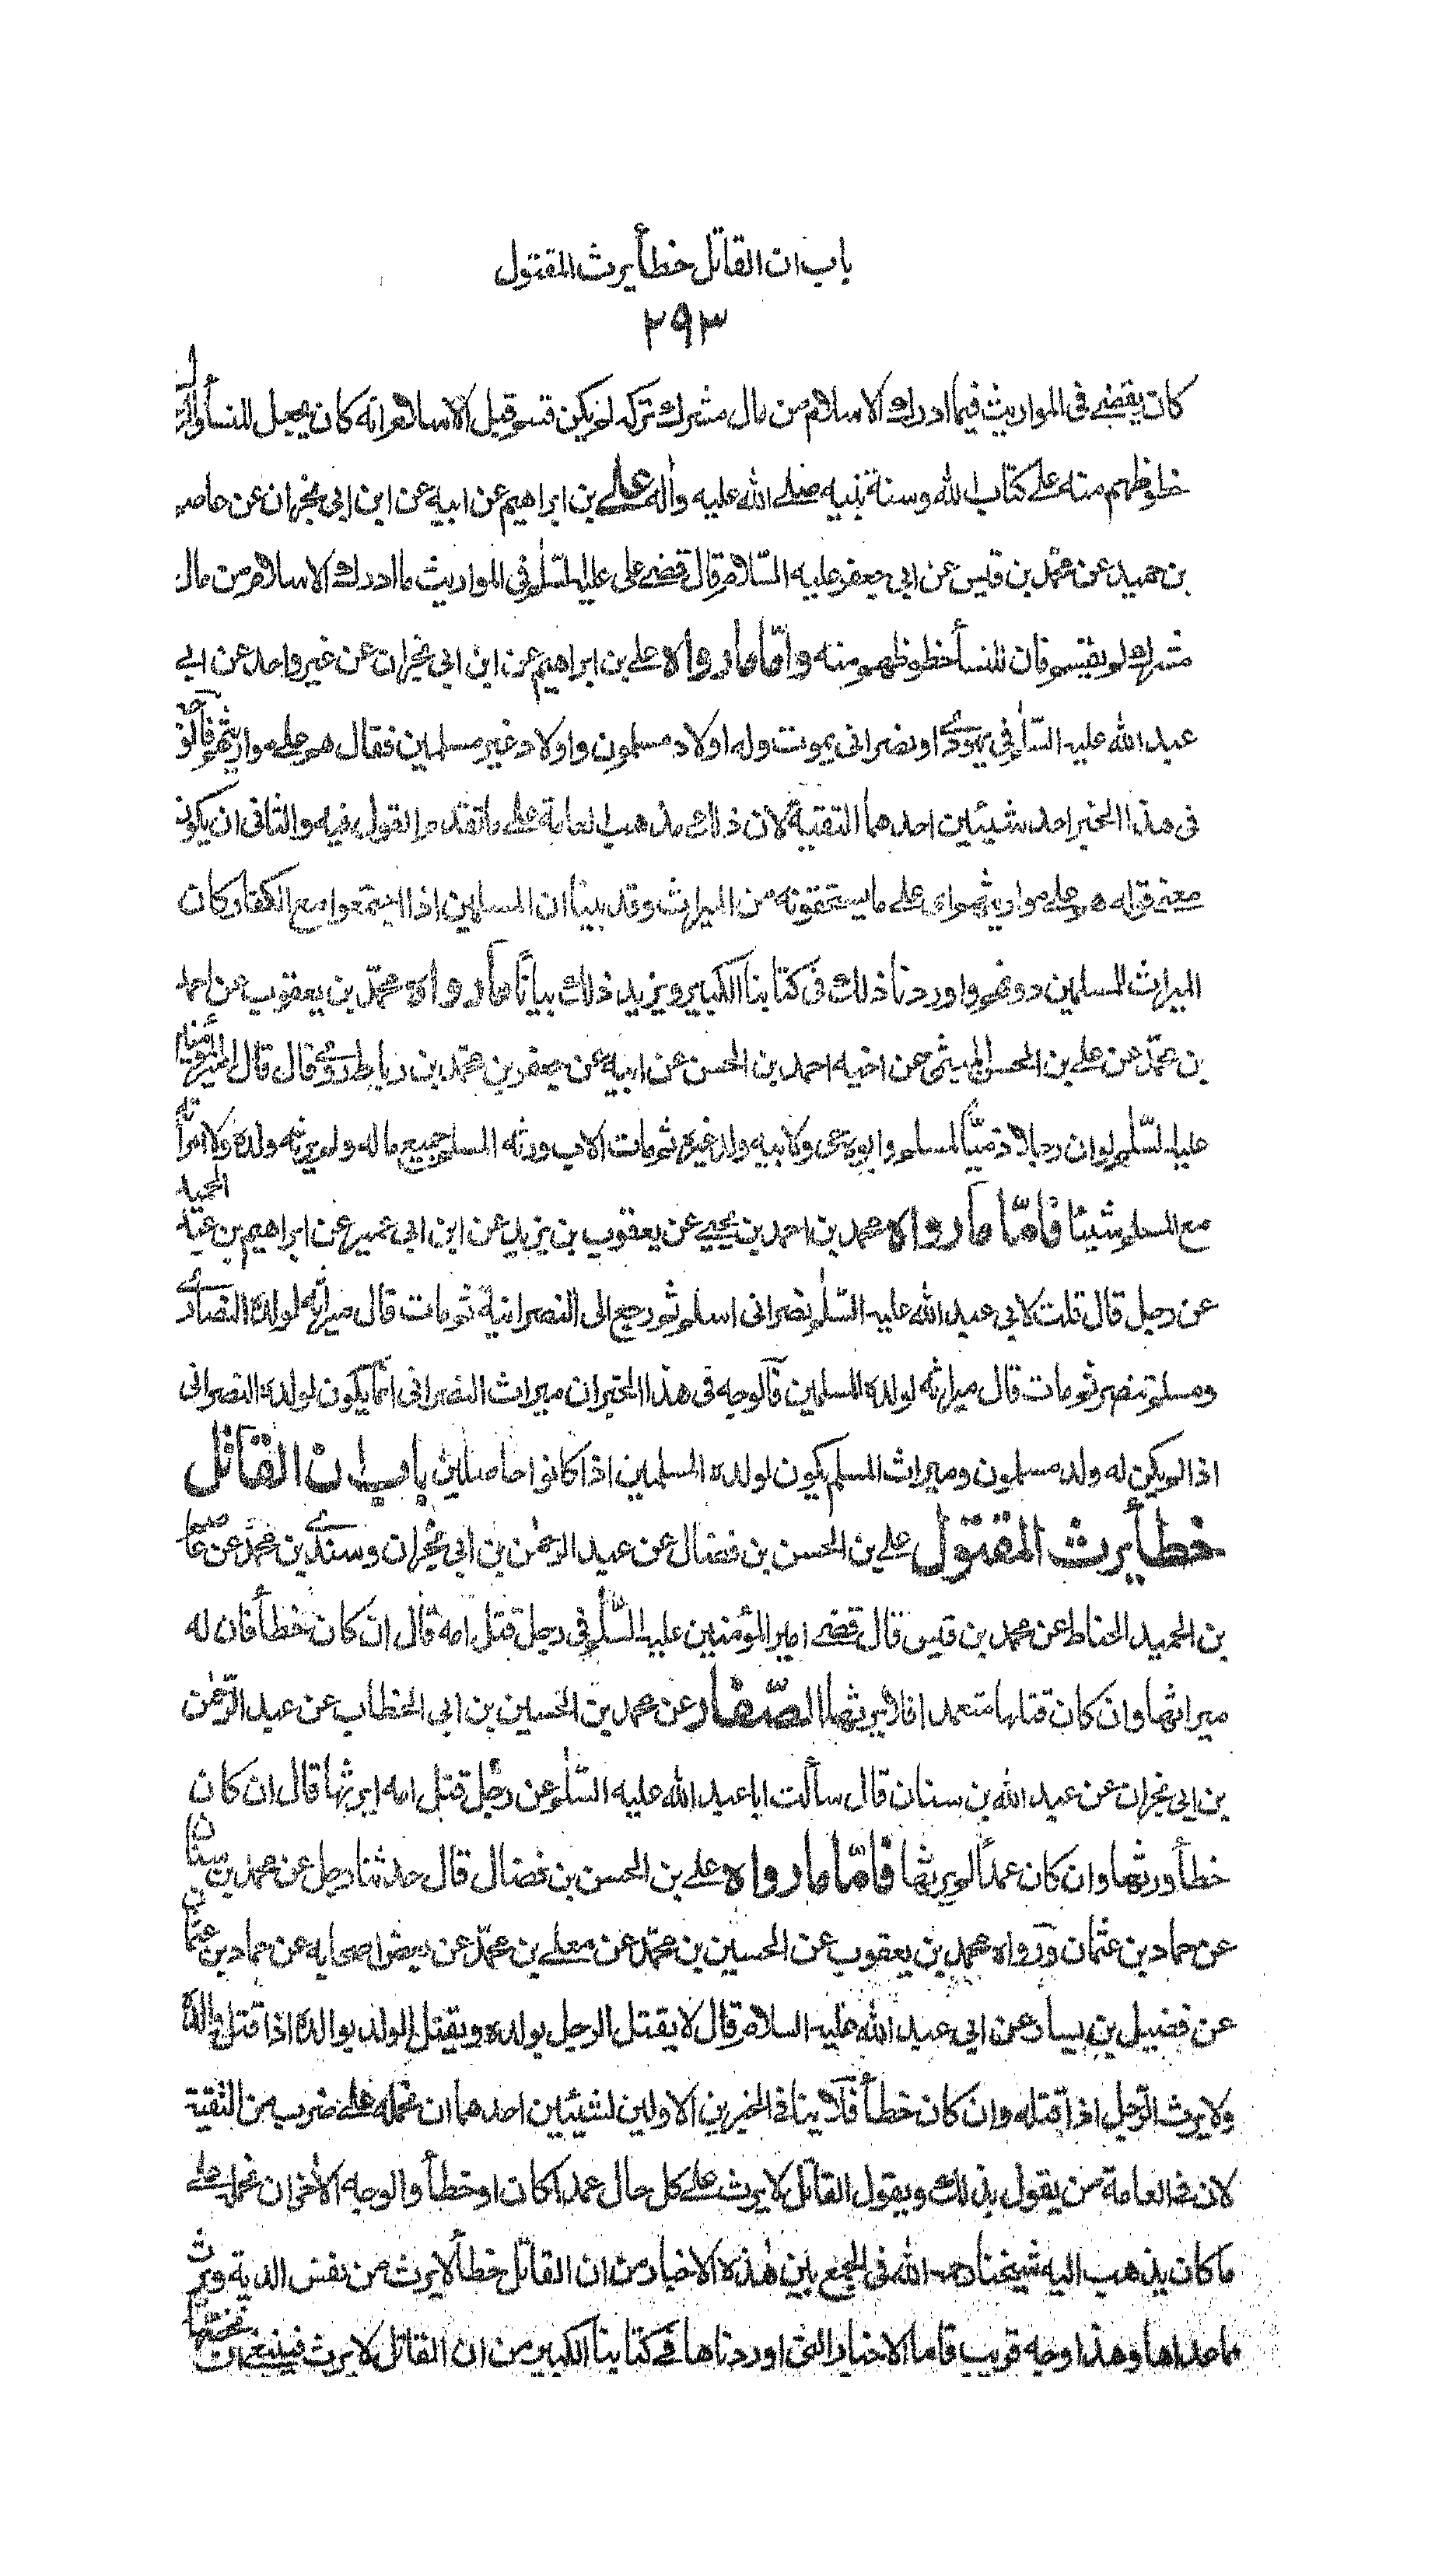 باب ان القاتل خطأ يرث المقتول
۲۹۳
كان يقضے فى المواريث فيما ادرك الاسلام من مال مشرك تركه لم يكن قسم قبل الاسلام انه كان يجعل للنسأ والرجال
حظوظهم منه علے كتاب الله وسنة نبيه صلے الله عليه واٰله علے بن ابراهيم عن ابيه عن ابن ابى نجران عن عاصم
بن حميد عن محمد بن قيس عن ابى جعفر عليه السّلام قال قضے على عليه السّلم فى المواريث ما ادرك الاسلام من مال
مشرك لم يقسم فان للنسأ حظوظهم منه وامّا مارواه علے بن ابراهيم عن ابن ابى نجران عن غير واحد عن ابے
عبد الله عليه السّلم فى يهودے او نصرانى يموت وله اولاد مسلمون واولاد غير مسلمين فقال هم علے مواريثهم فالوجه
فى هذا الخبر احد شيئين احدهما التقية لان ذلك مذهب العامة علے ما تقدم القول فيه والثانى ان يكون
معنے قوله هم علے مواريثهم اى على ما يستحقونه من الميراث وقد بينا ان المسلمين اذا اجتمعوا مع الكفار كان
الميراث للمسلمين دونهم واوردنا ذلك فى كتابنا الكبير ويزيد ذلك بيانًا مارواه محمّد بن يعقوب عن احمد
بن محمّد عن علے بن الحسن الميثمى عن اخيه احمد بن الحسن عن ابيه عن جعفر بن محمد بن رباط روے قال قال اميرالمؤمنين
عليه السّلم لو ان رجلا ذميّا اسلم وابوه حى ولابيه ولد غيره ثم مات الاب ورثه المسلم جميع ماله ولم يرثه ولده ولا امرأته
مع المسلم شيئا فامّا مارواه محمد بن احمد بن يحيے عن يعقوب بن يزيد عن ابن ابى عمير عن ابراهيم بن عبد الحميد
عن رجل قال قلت لابى عبد الله عليه السّلم نصرانى اسلم ثم رجع الى النصرانية ثم مات قال ميراثه لولده النصارے
ومسلم تنصر ثم مات قال ميراثه لولده المسلمين فالوجه فى هذا الخبر ان ميراث النصرانى انما يكون لولده النصرانى
اذا لم يكن له ولد مسلمون وميراث المسلم يكون لولده المسلمين اذا كانوا حاصلين باب ان القاتل
خطأ يرث المقتول علے بن الحسن بن فضال عن عبد الرحمٰن بن ابى نجران وسندے بن محمد عن عاصم
بن الحميد الحناط عن محمد بن قيس قال قضے امير المؤمنين عليه السّلم فى رجل قتل امه قال ان كان خطأ فان له
ميراثها وان كان قتلها متعمدا فلا يرثها الصّفار عن محمد بن الحسين بن ابى الخطاب عن عبد الرّحمٰن
بن ابى نجران عن عبد الله بن سنان قال سألت ابا عبد الله عليه السّلم عن رجل قتل امه ايرثها قال ان كان
خطأ ورثها وان كان عمدا لم يرثها فامّا مارواه علے بن الحسن بن فضال قال حدثنا رجل عن محمد بن سنان
عن حماد بن عثمان ورواه محمد بن يعقوب عن الحسين بن محمّد عن معلے بن محمّد عن بعض اصحابه عن حماد بن عثمان
عن فضيل بن يسار عن ابى عبد الله عليه السلام قال لا يقتل الرجل بولده ويقتل الولد بوالده اذا قتل والده
ولا يرث الرّجل اذا قتله وان كان خطأ فلا ينافى الخبرين الاولين لشيئين احدهما ان نحمله علے ضرب من التقية
لان فى العامة من يقول بذلك ويقول القاتل لا يرث علے كل حال عمدا كان او خطأ والوجه الاٰخر ان نحمله علے
ما كان يذهب اليه شيخنا رحمه الله فى الجمع بين هٰذه الاخبار من ان القاتل خطأ لا يرث من نفس الدية ويرث
ما عداها وهذا وجه قريب فاما الاخبار التى اوردناها فے كتابنا الكبير من ان القاتل لا يرث فينبغے ان نخصها